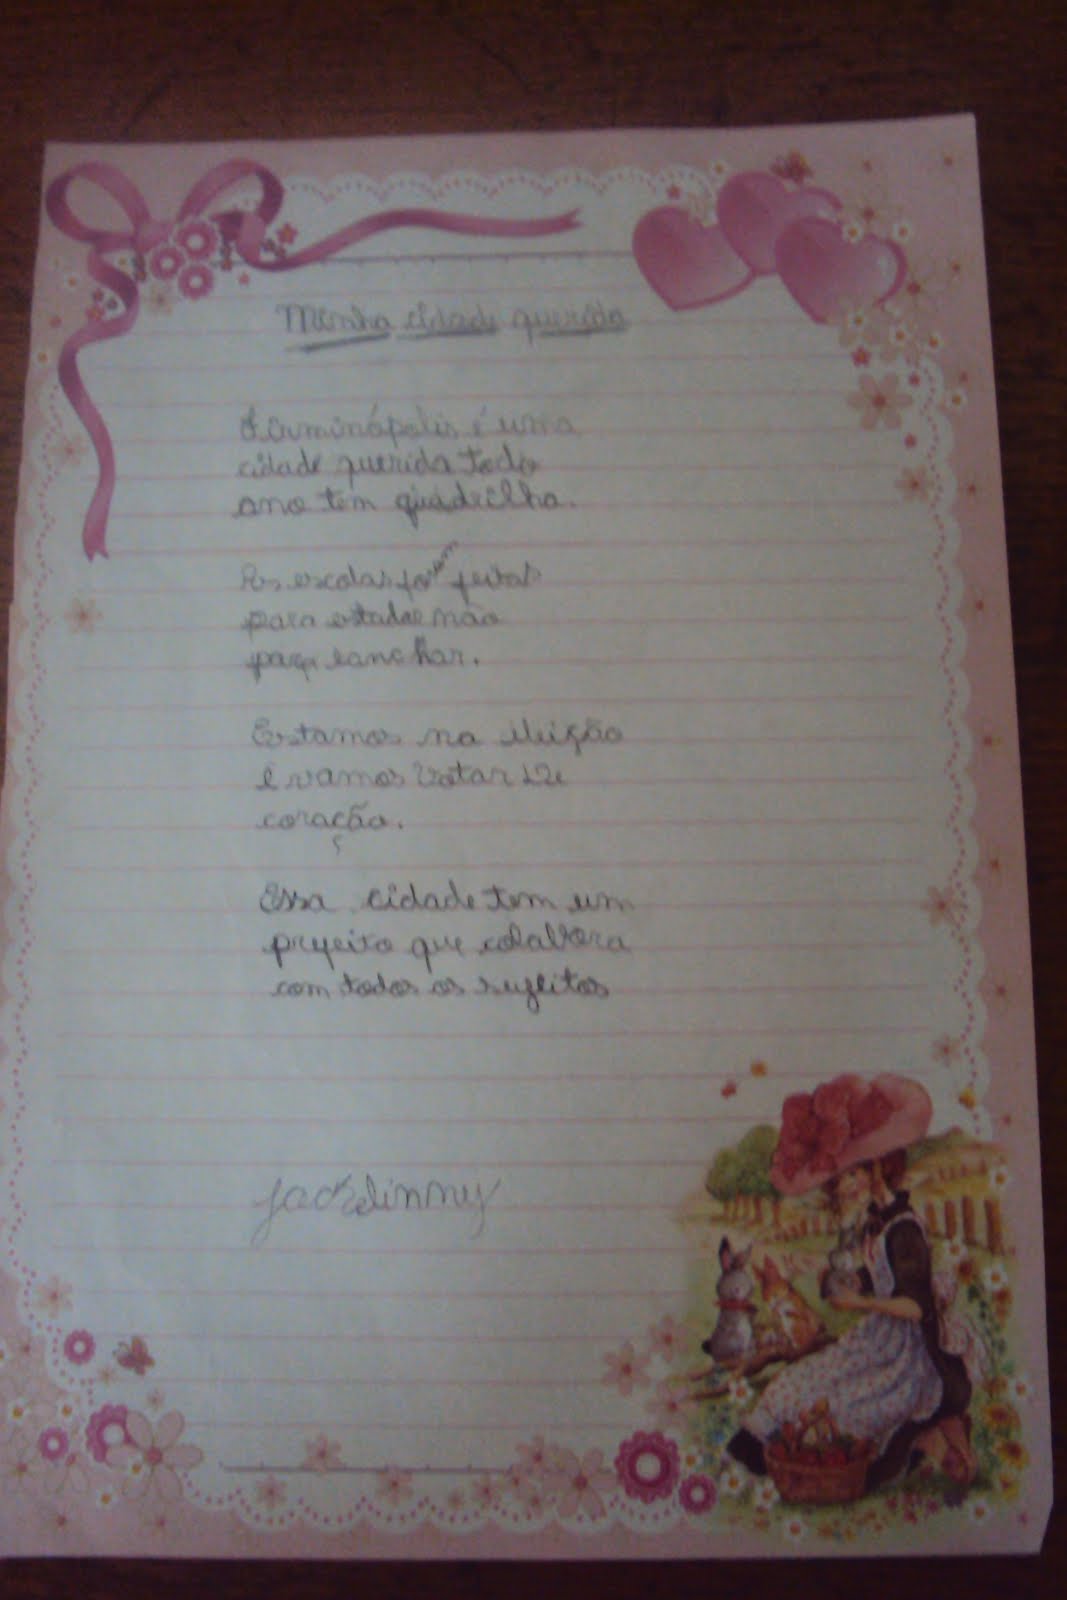 Minha cidade querida
Turminópolis é uma
cidade querida todo
ano tem quadrilha.
As escolas foram feitas
para estudar não
para lanchar.
Estamos na eleição
e vamos votar de
coração.
Essa cidade tem um
prefeito que colabora
com todos os sujeitos
Jackelinny